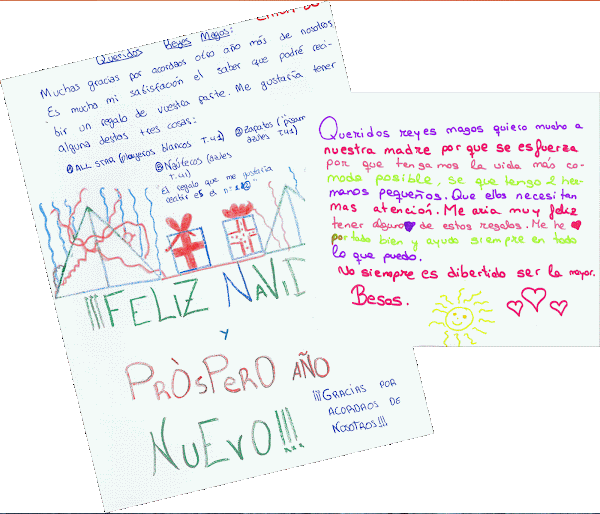 Queridos Reyes Magos:
Muchas gracias por acordaos otro año más de nosotros
Es mucha mi satisfacción el saber que podré reci-
bir un regalo de vuestra parte. Me gustaría tener
alguna destas tres cosas:
ALL STAR (playeros blancos T.41)
Zapatos
Naúticos (azules
T.41)
"El regalo que me gustaría
recibir es el nº 1
¡¡¡FELIZ NAVI
y
PRÒSPERO AÑO
NUEVO!!!
¡¡¡GRACIAS POR
ACORDAOS DE
NOSOTROS!!!
Queridos reyes magos quiero mucho a
nuestra madre por que se esfuerza
por que tengamos la vida más co-
moda posible, se que tengo 2 her-
manos pequeños. Que ellos necesitan
mas atención. Me aria muy feliz
tener alguno de estos regalos. Me he
portado bien y ayudo siempre en todo
lo que puedo.
No siempre es dibertido ser la mayor.
Besos.